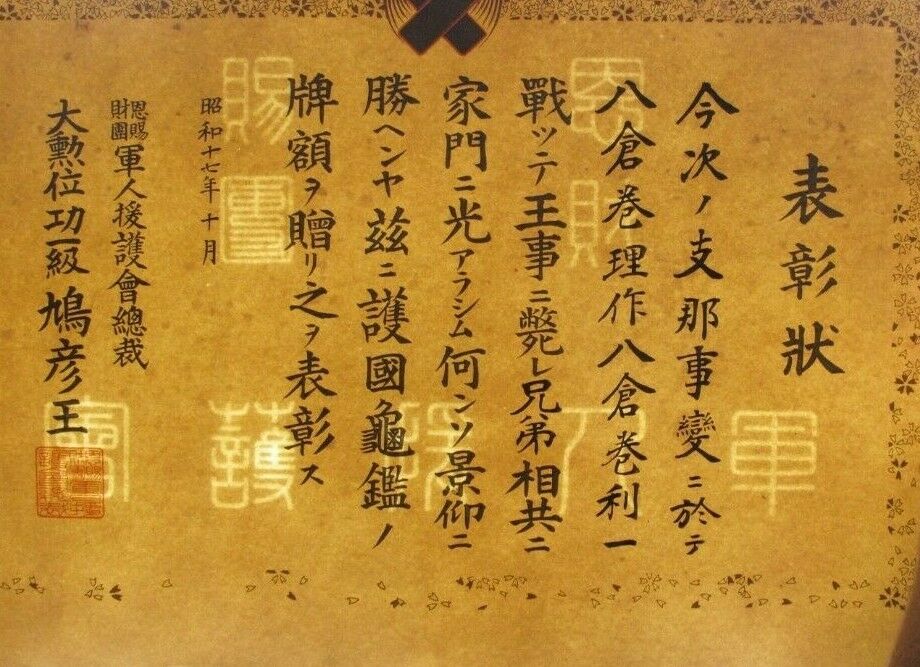 表彰狀
今次ノ支那事變ニ於テ
八倉巻理作八倉巻利一
戰ツテ王事ニ斃レ兄弟相共ニ
家門ニ光アラシム何ンソ景仰ニ
勝ヘンヤ茲ニ護國龜鑑ノ
牌額ヲ贈リ之ヲ表彰ス
昭和十七年十月
恩賜
財團
軍人援護會總裁
大勲位功一級鳩彦王
恩賜
財團
軍人援護會